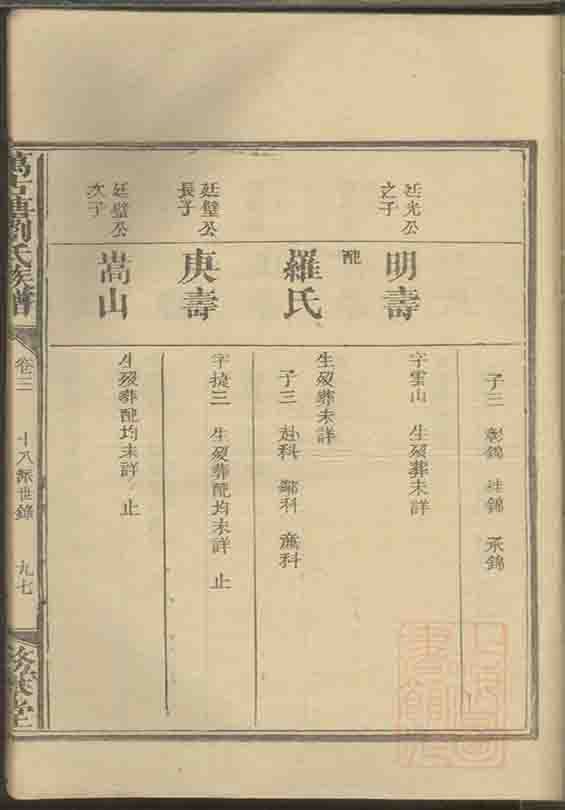 子三 彰錦 桂錦 承錦
廷光公
之子
明壽
字雲山 生歿葬未詳
配
羅氏
生歿葬未詳
子三 赴科 鄰科 薦科
廷璧公
長子
庚壽
字捷三 生歿葬配均未詳 止
廷璧公
次子
嵩山
生歿葬配均未詳 止
劉氏族譜
卷三
十八派世錄
九七
上海圖
書館藏